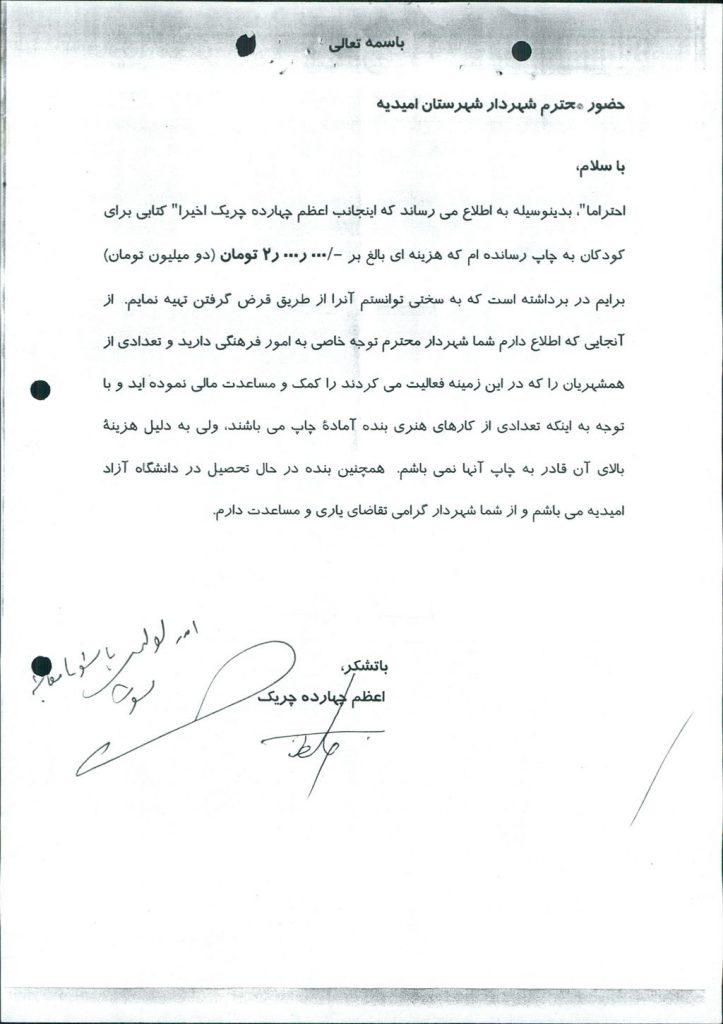 باسمه تعالی
حضور محترم شهردار شهرستان امیدیه
با سلام،
احتراما"، بدینوسیله به اطلاع می رساند که اینجانب اعظم چهارده چریک اخیرا" کتابی برای
کودکان به چاپ رسانده ام که هزینه ای بالغ بر -/۲ر۰۰۰ر۰۰۰ تومان (دو میلیون تومان)
برایم در برداشته است که به سختی توانستم آنرا از طریق قرض گرفتن تهیه نمایم. از
آنجایی که اطلاع دارم شما شهردار محترم توجه خاصی به امور فرهنگی دارید و تعدادی از
همشهریان را که در این زمینه فعالیت می کردند را کمک و مساعدت مالی نموده اید و با
توجه به اینکه تعدادی از کارهای هنری بنده آمادهٔ چاپ می باشند، ولی به دلیل هزینهٔ
بالای آن قادر به چاپ آنها نمی باشم. همچنین بنده در حال تحصیل در دانشگاه آزاد
امیدیه می باشم و از شما شهردار گرامی تقاضای یاری و مساعدت دارم.
باتشکر،
اعظم چهارده چریک